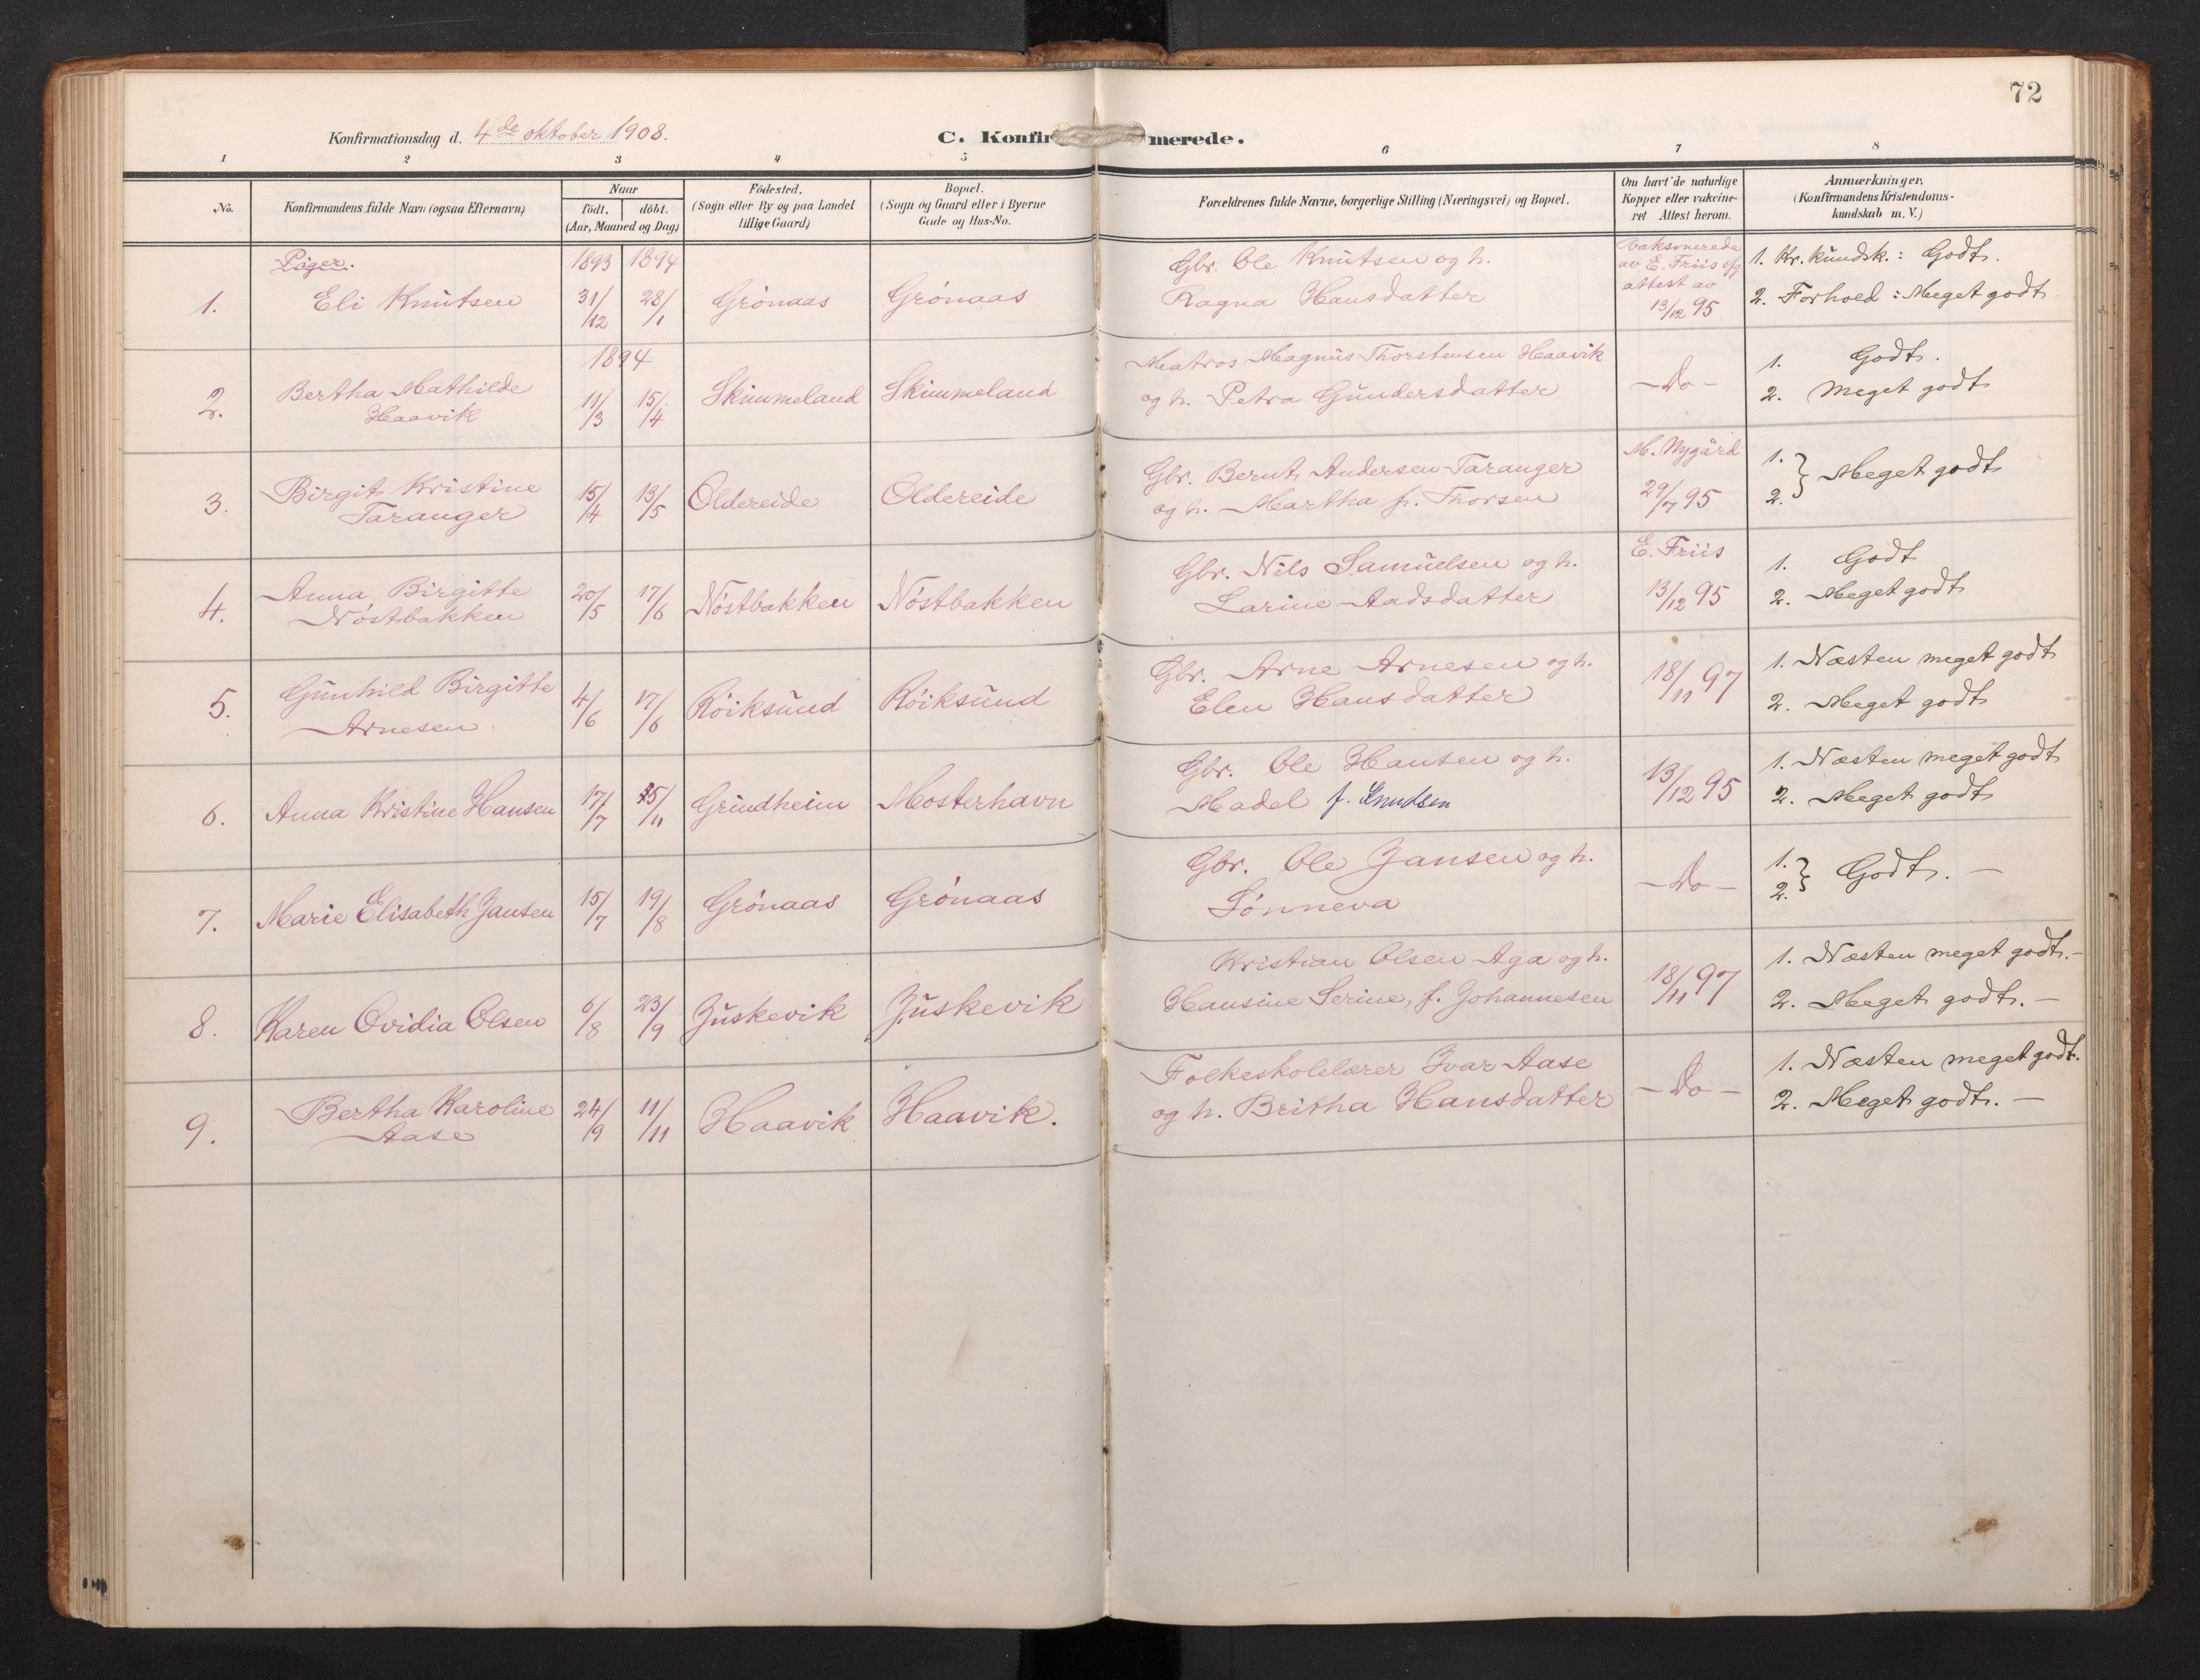 72
Konfirmationsdag d. 4de oktober 1908.
C. Konfir merede.
1 2 3 4 5 6 7 8
No.
Konfirmandens fulde Navn (ogsaa Efternavn)
Naar
födt. döbt.
(Aar, Maaned og Dag)
Födested.
(Sogn eller By og paa Landet
tillige Gaard)
Bopæl.
(Sogn og Gaard eller i Byerne
Gade og Hus-No.
Forældrenes fulde Navne, borgerlige Stilling (Næringsvei) og Bopæl.
Om havt de naturlige
Kopper eller vakcine-
ret Attest herom.
Anmærkninger.
(Konfirmandens Kristendoms-
kundskab m. V.)
Piger.
1893 1894
1. Eli Knutsen 31/12 28/1 Grönaas Grönaas
Gbr. Ole Knutsen og h.
Ragna Hansdatter
Vaksinerede
av E. Friis ifg
attest av
13/12 95
1. Kr. kundsk.: Godt.
2. Forhold: Meget godt
1894
2. Bertha Mathilde
Haavik
11/3 15/4 Skimmeland Skimmeland
Matros Magnus Thorstensen Haavik
og h. Petra Gundersdatter
- Do -
1. Godt.
2. Meget godt
3. Birgit Kristine
Taranger
15/4 13/5 Oldereide Oldereide
Gbr. Bernt Andersen Taranger
og h. Martha f. Thorsen
M. Nygård
29/7 95
1.
2. } Meget godt
4. Anna Birgitte
Nöstbakken
20/5 17/6 Nöstbakken Nöstbakken
Gbr. Nils Samuelsen og h.
Larine Aadsdatter
E. Friis
13/12 95
1. Godt
2. Meget godt
5. Gunhild Birgitte
Arnesen
4/6 17/6 Röiksund Röiksund
Gbr. Arne Arnesen og h.
Elen Hansdatter
18/11 97
1. Næsten meget godt
2. Meget godt
6. Anna Kristine Hansen 17/7 25/11 Grindheim Mosterhavn
Gbr. Ole Hansen og h.
Madel f. Knudsen
13/12 95
1. Næsten meget godt
2. Meget godt
7. Marie Elisabeth Jansen 15/7 19/8 Grönaas Grönaas
Gbr. Ole Jansen og h.
Sönneva
- Do -
1.
2. } Godt. -
8. Karen Ovidia Olsen 6/8 23/9 Juskevik Juskevik
Kristian Olsen Aga og h.
Hansine Serine, f. Johannesen
18/11 97
1. Næsten meget godt. -
2. Meget godt. -
9. Bertha Karoline
Aase
24/9 11/11 Haavik Haavik.
Folkeskolelærer Ivar Aase
og h. Britha Hansdatter
- Do -
1. Næsten meget godt.
2. Meget godt. -